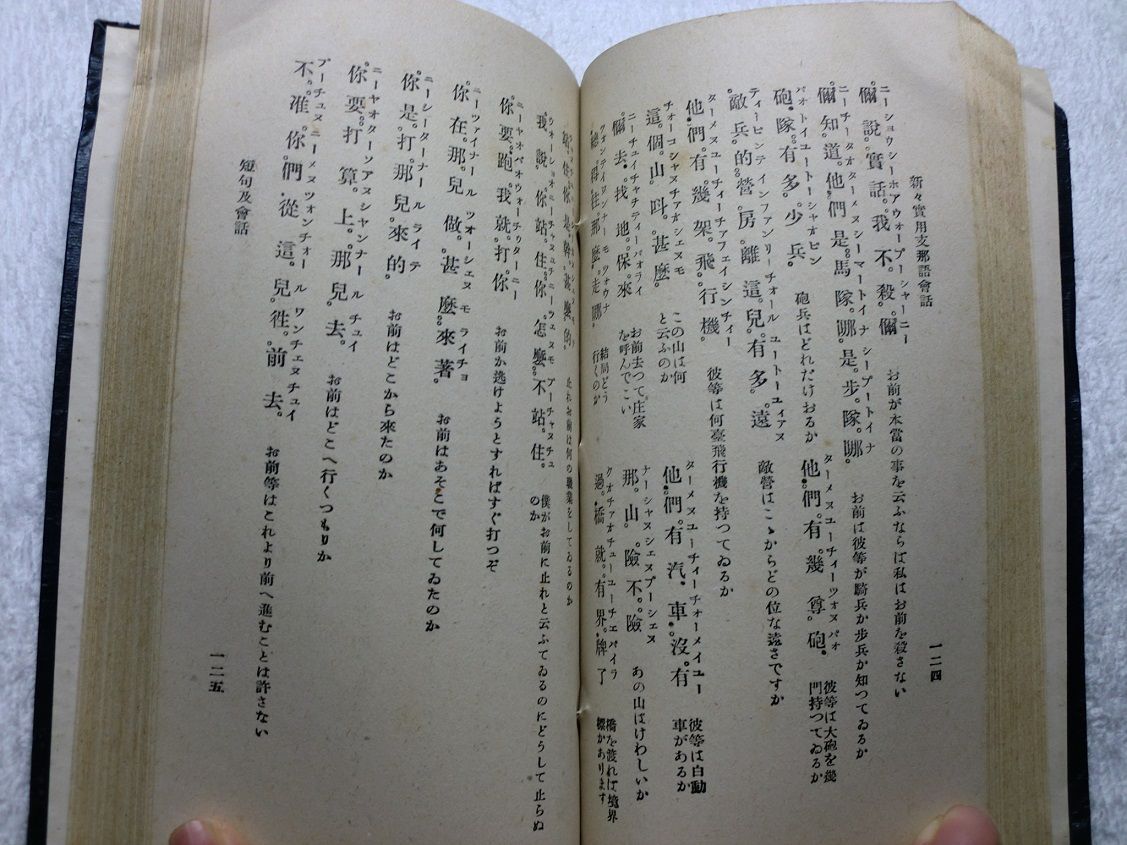 新々實用支那語會話
一二四
ニーショウシーホアウォープーシャーニー
儞說實話。我不殺儞
お前が本當の事を云ふならば私はお前を殺さない
ニーチータオターメヌシーマートイナ シープートイナ
儞知道他們是馬隊哪。是步隊哪。
お前は彼等が騎兵か步兵か知つてゐるか
パオトイユートーシャオピン
砲隊有多少兵。
砲兵はどれだけおるか
ターメヌユーチィーツォヌパオ
他們有幾尊砲。
彼等は大砲を幾門持つてゐるか
ティーピンテインファンリーチォール ユートーユィアヌ
敵兵的營房離這兒有多遠
敵營はこゝからどの位な遠さですか
ターメヌユーチィーチアフェイシンチィー
他們有幾架飛行機。
彼等は何臺飛行機を持つてゐるか
ターメヌユーチィーチォーメイユー
他們有汽車沒有
彼等は自動車があるか
チォーコシャヌチアオシェヌモ
這個山呌甚麼
この山は何と云ふのか
ナーシャヌシェヌプーシェヌ
那山險不險
あの山はけわしいか
ニーチュイチャチティーパオライ
儞去找地保來
お前去つて庄家を呼んでこい
クオチァオチューユーチエパイラ
過橋就有界牌了
橋を渡れば境界標があります
總得往那麼走哪。
結局どう行くのか
站住你是幹甚麼的。
止れお前は何の職業をしてゐるのか
ウォーショオニーチャヌュチニーヴェヌモ プーチャヌチュ
我說你站住你怎麼不站住。
僕がお前に止れと云ふてゐるのにどうして止らぬのか
ニーヤオペオウォーチウターニー
你要跑我就打你
お前が逃げようとすればすぐ打つぞ
ニーツァイナール ツオーシェヌ モ ライチョ
你在那兒做甚麼來著。
お前はあそこで何してゐたのか
ニーシーターナール ライテ
你是打那兒來的。
お前はどこから来たのか
ニーヤオターソアヌシャンナール チュイ
你要打算上那兒去。
お前はどこへ行くつもりか
プーチュヌニーメヌツォンチォール ワンチェヌチュイ
不准你們從這兒徃前去。
お前等はこれより前へ進むことは許さない
短句及會話
一二五